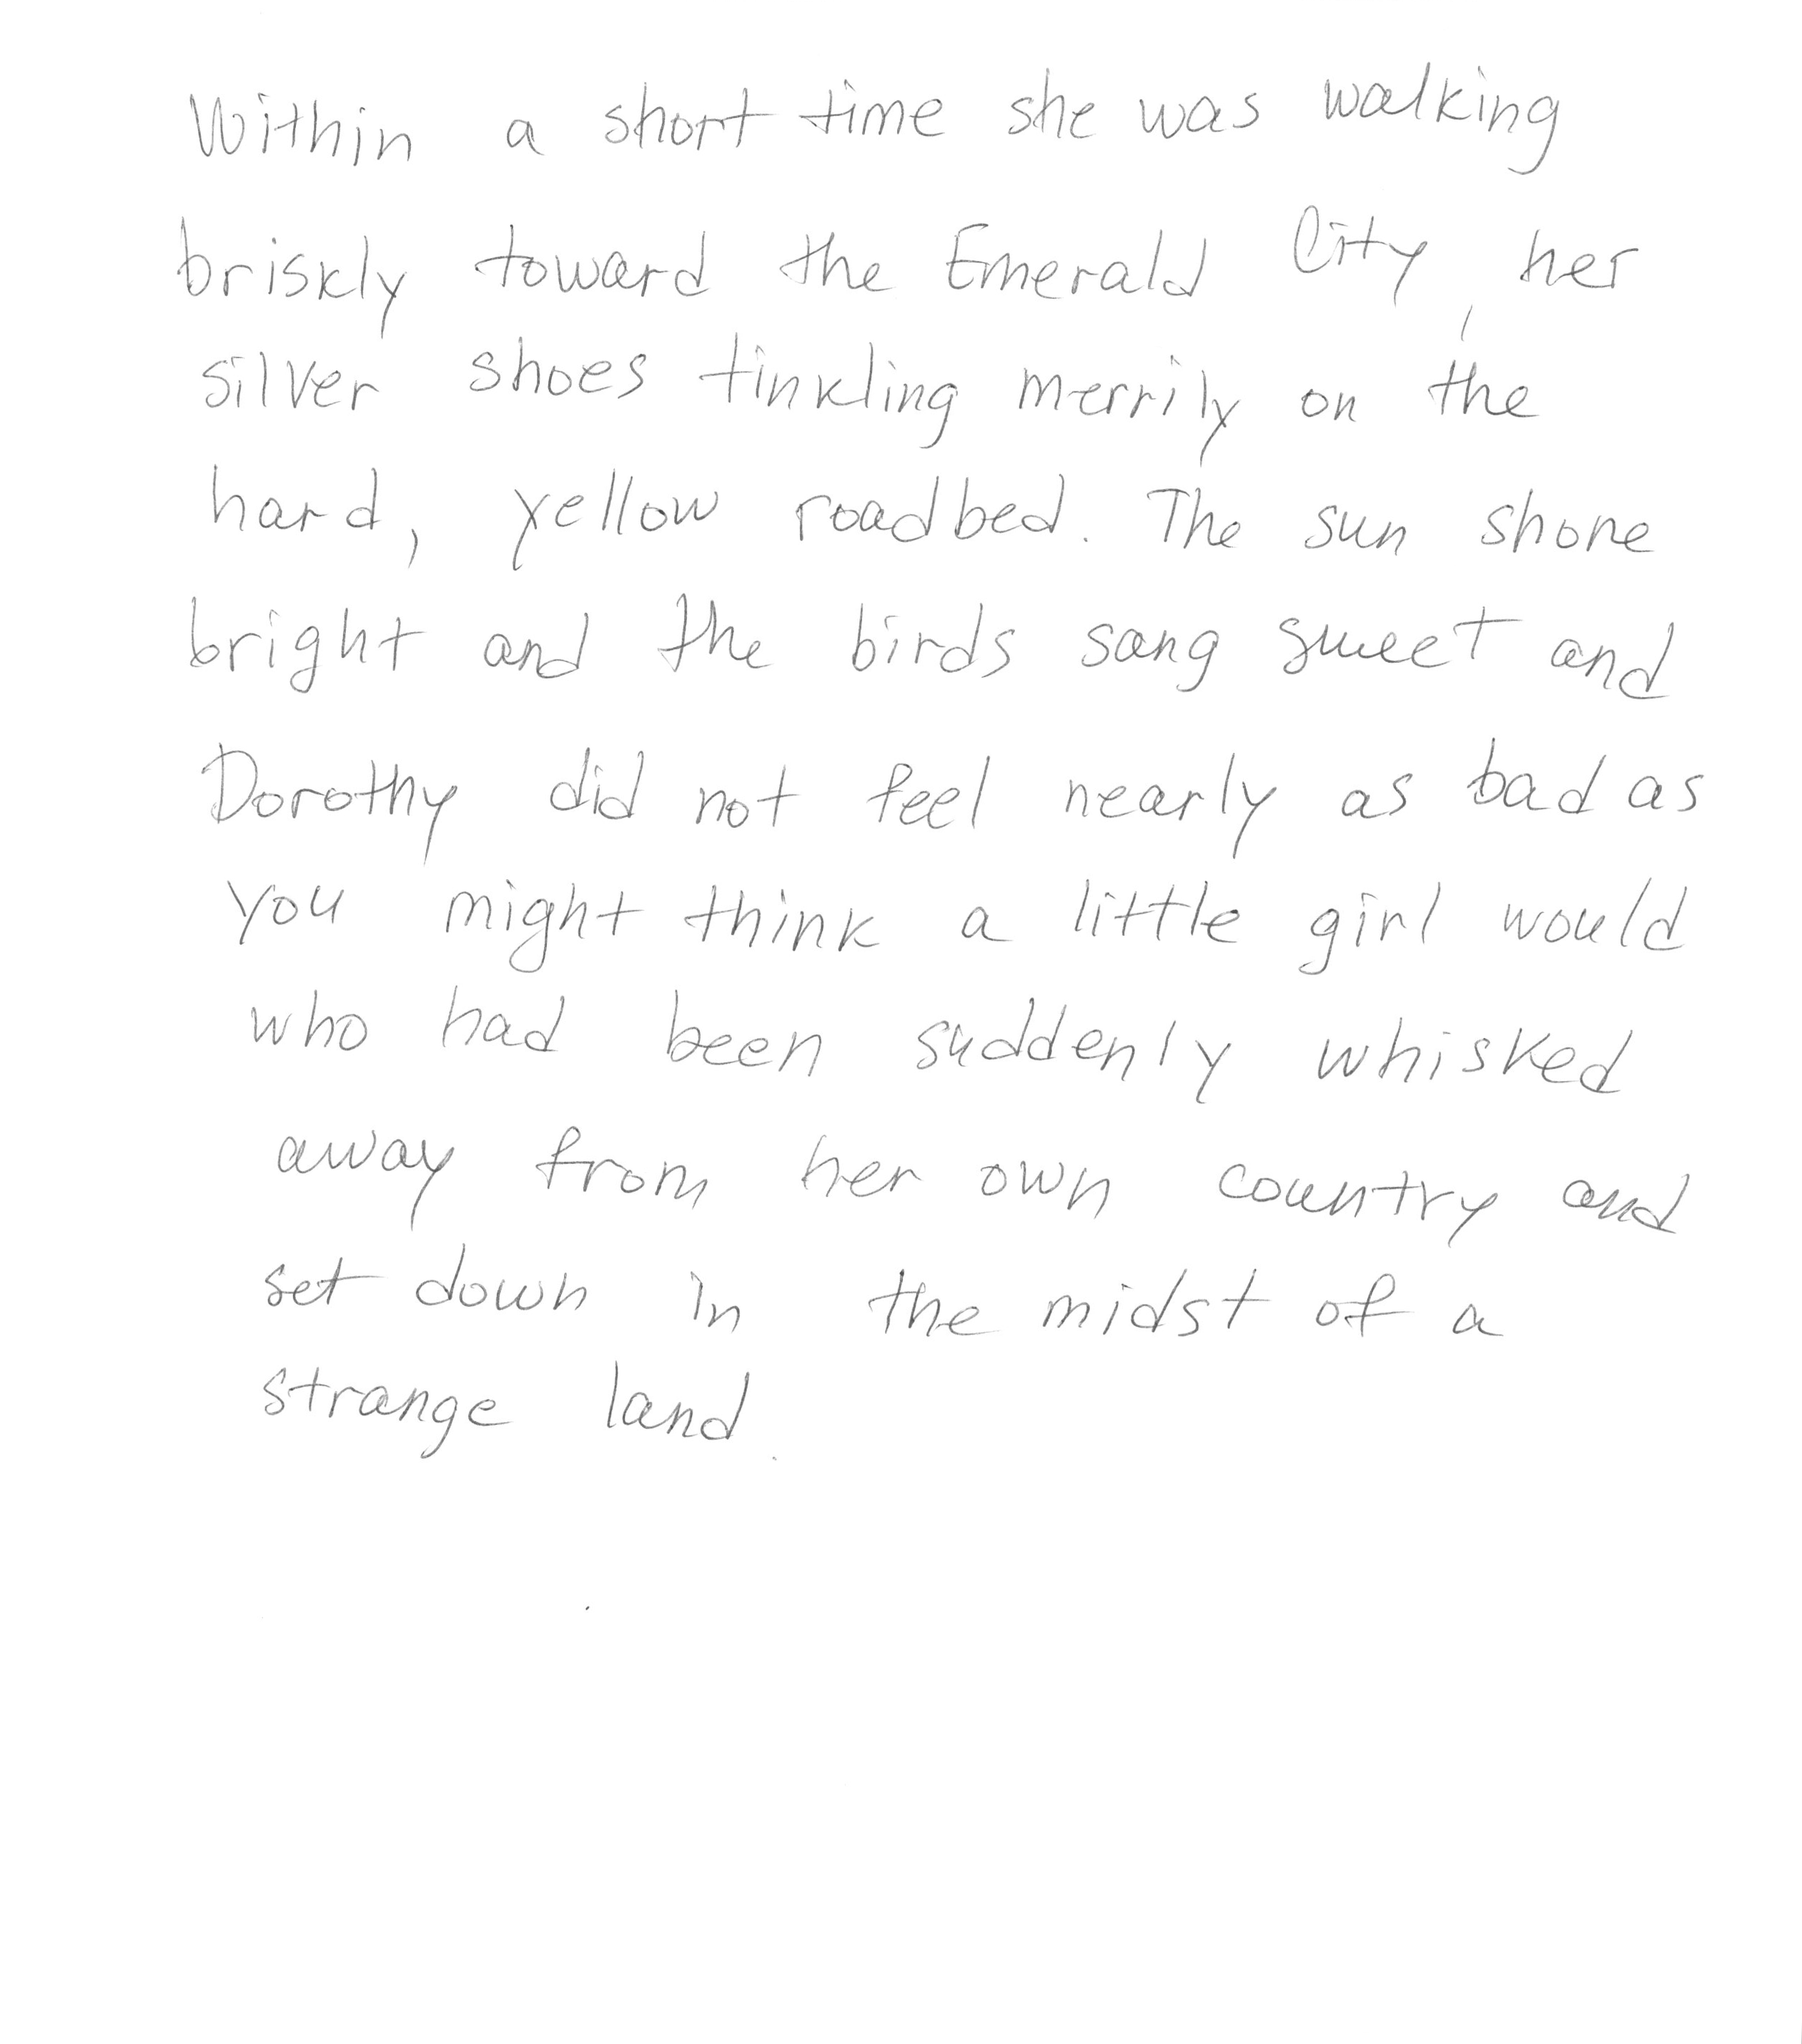 Within a short time she was walking
briskly toward the Emerald City, her
silver shoes tinkling merrily on the
hard, yellow roadbed. The sun shone
bright and the birds sang sweet and
Dorothy did not feel nearly as bad as
you might think a little girl would
who had been suddenly whisked
away from her own country and
set down in the midst of a
strange land.